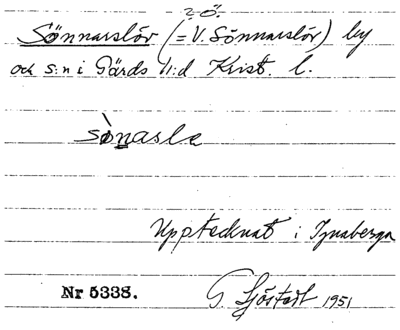 ? Ö.
Sönnarslöv (= V. Sönnarslöv) by
och s:n i Gärds h:d Krist. l.
sònasle
Upptecknat i
Nr 5338. G. Sjöstedt 1951